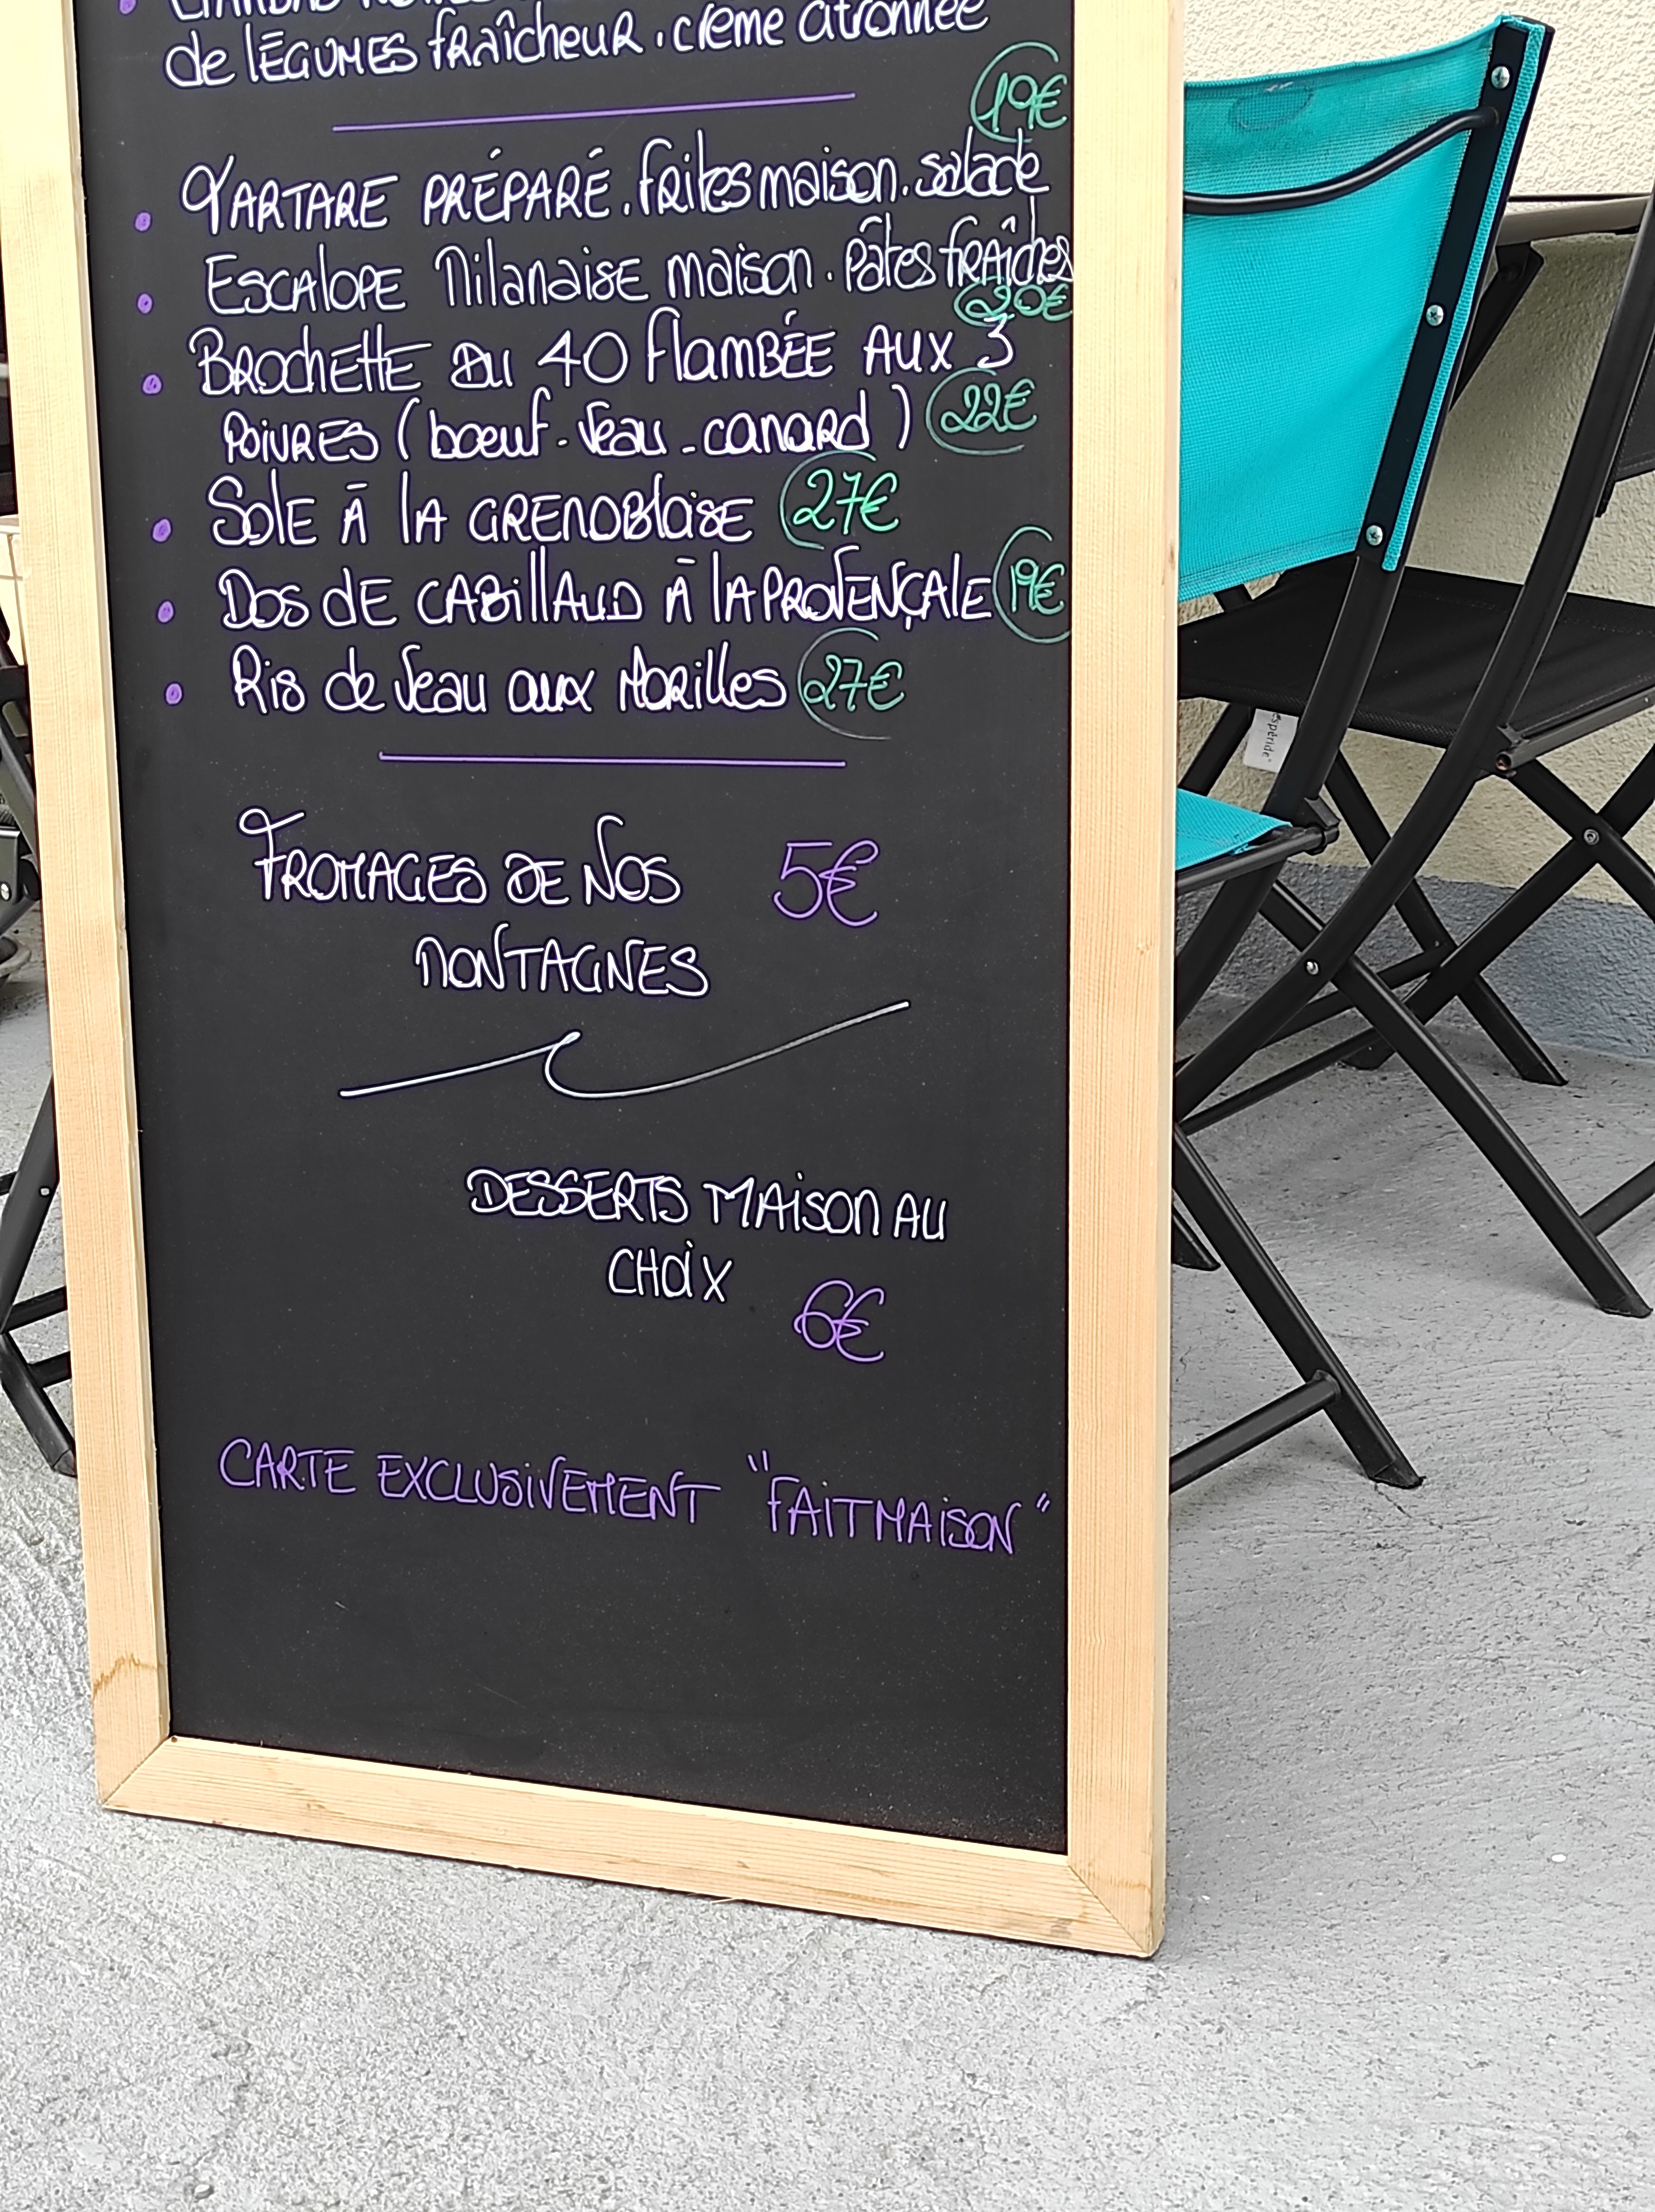 de légumes fraîcheur . crème citronnée
19€
Tartare préparé . frites maison . salade
Escalope Milanaise maison . pâtes fraîches
20€
Brochette du 40 flambée aux 3
poivres (boeuf - veau - canard) 22€
Sole à la Grenobloise 27€
Dos de cabillaud à la Provençale 19€
Ris de veau aux Morilles 27€
Fromages de Nos 5€
Montagnes
Desserts Maison au
choix
6€
Carte exclusivement "Fait Maison"
spéride